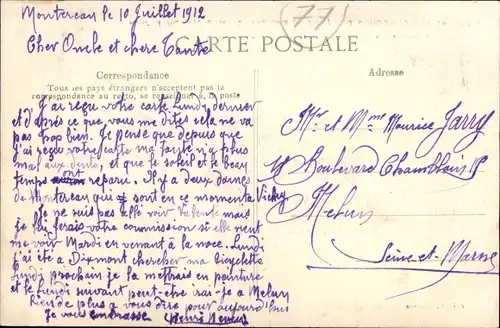 Montereau le 10 Juillet 1912
(77)
Cher Oncle et chère Tante
CARTE POSTALE
Correspondance
Adresse
Tous les pays étrangers n'acceptent pas la
correspondance au recto, se renseigner à la poste
J'ai reçu votre carte Lundi dernier
et d'après ce que vous me dites cela ne va
pas trop bien. Je pense que depuis que
j'ai reçu votre carte ma tante n'a plus
mal aux dents, et que le soleil et le beau
temps ont reparu. Il y a deux dames
de Montereau qui sont en ce moment a Vichy
Je ne suis pas allé voir mais
je lui ferais votre commission si elle vient
me voir Mardi en venant à la noce. Lundi
j'ai été a Dixmont chercher ma bicyclette
Lundi prochain je la mettrais en peinture
et le Lundi suivant peut-être irai-je a Melun
Rien de plus a vous dire pour aujourd'hui
Je vous embrasse Henri
Mr et Mme Maurice Jarry
18 Boulevard Chamblain
Melun
Seine-et-Marne